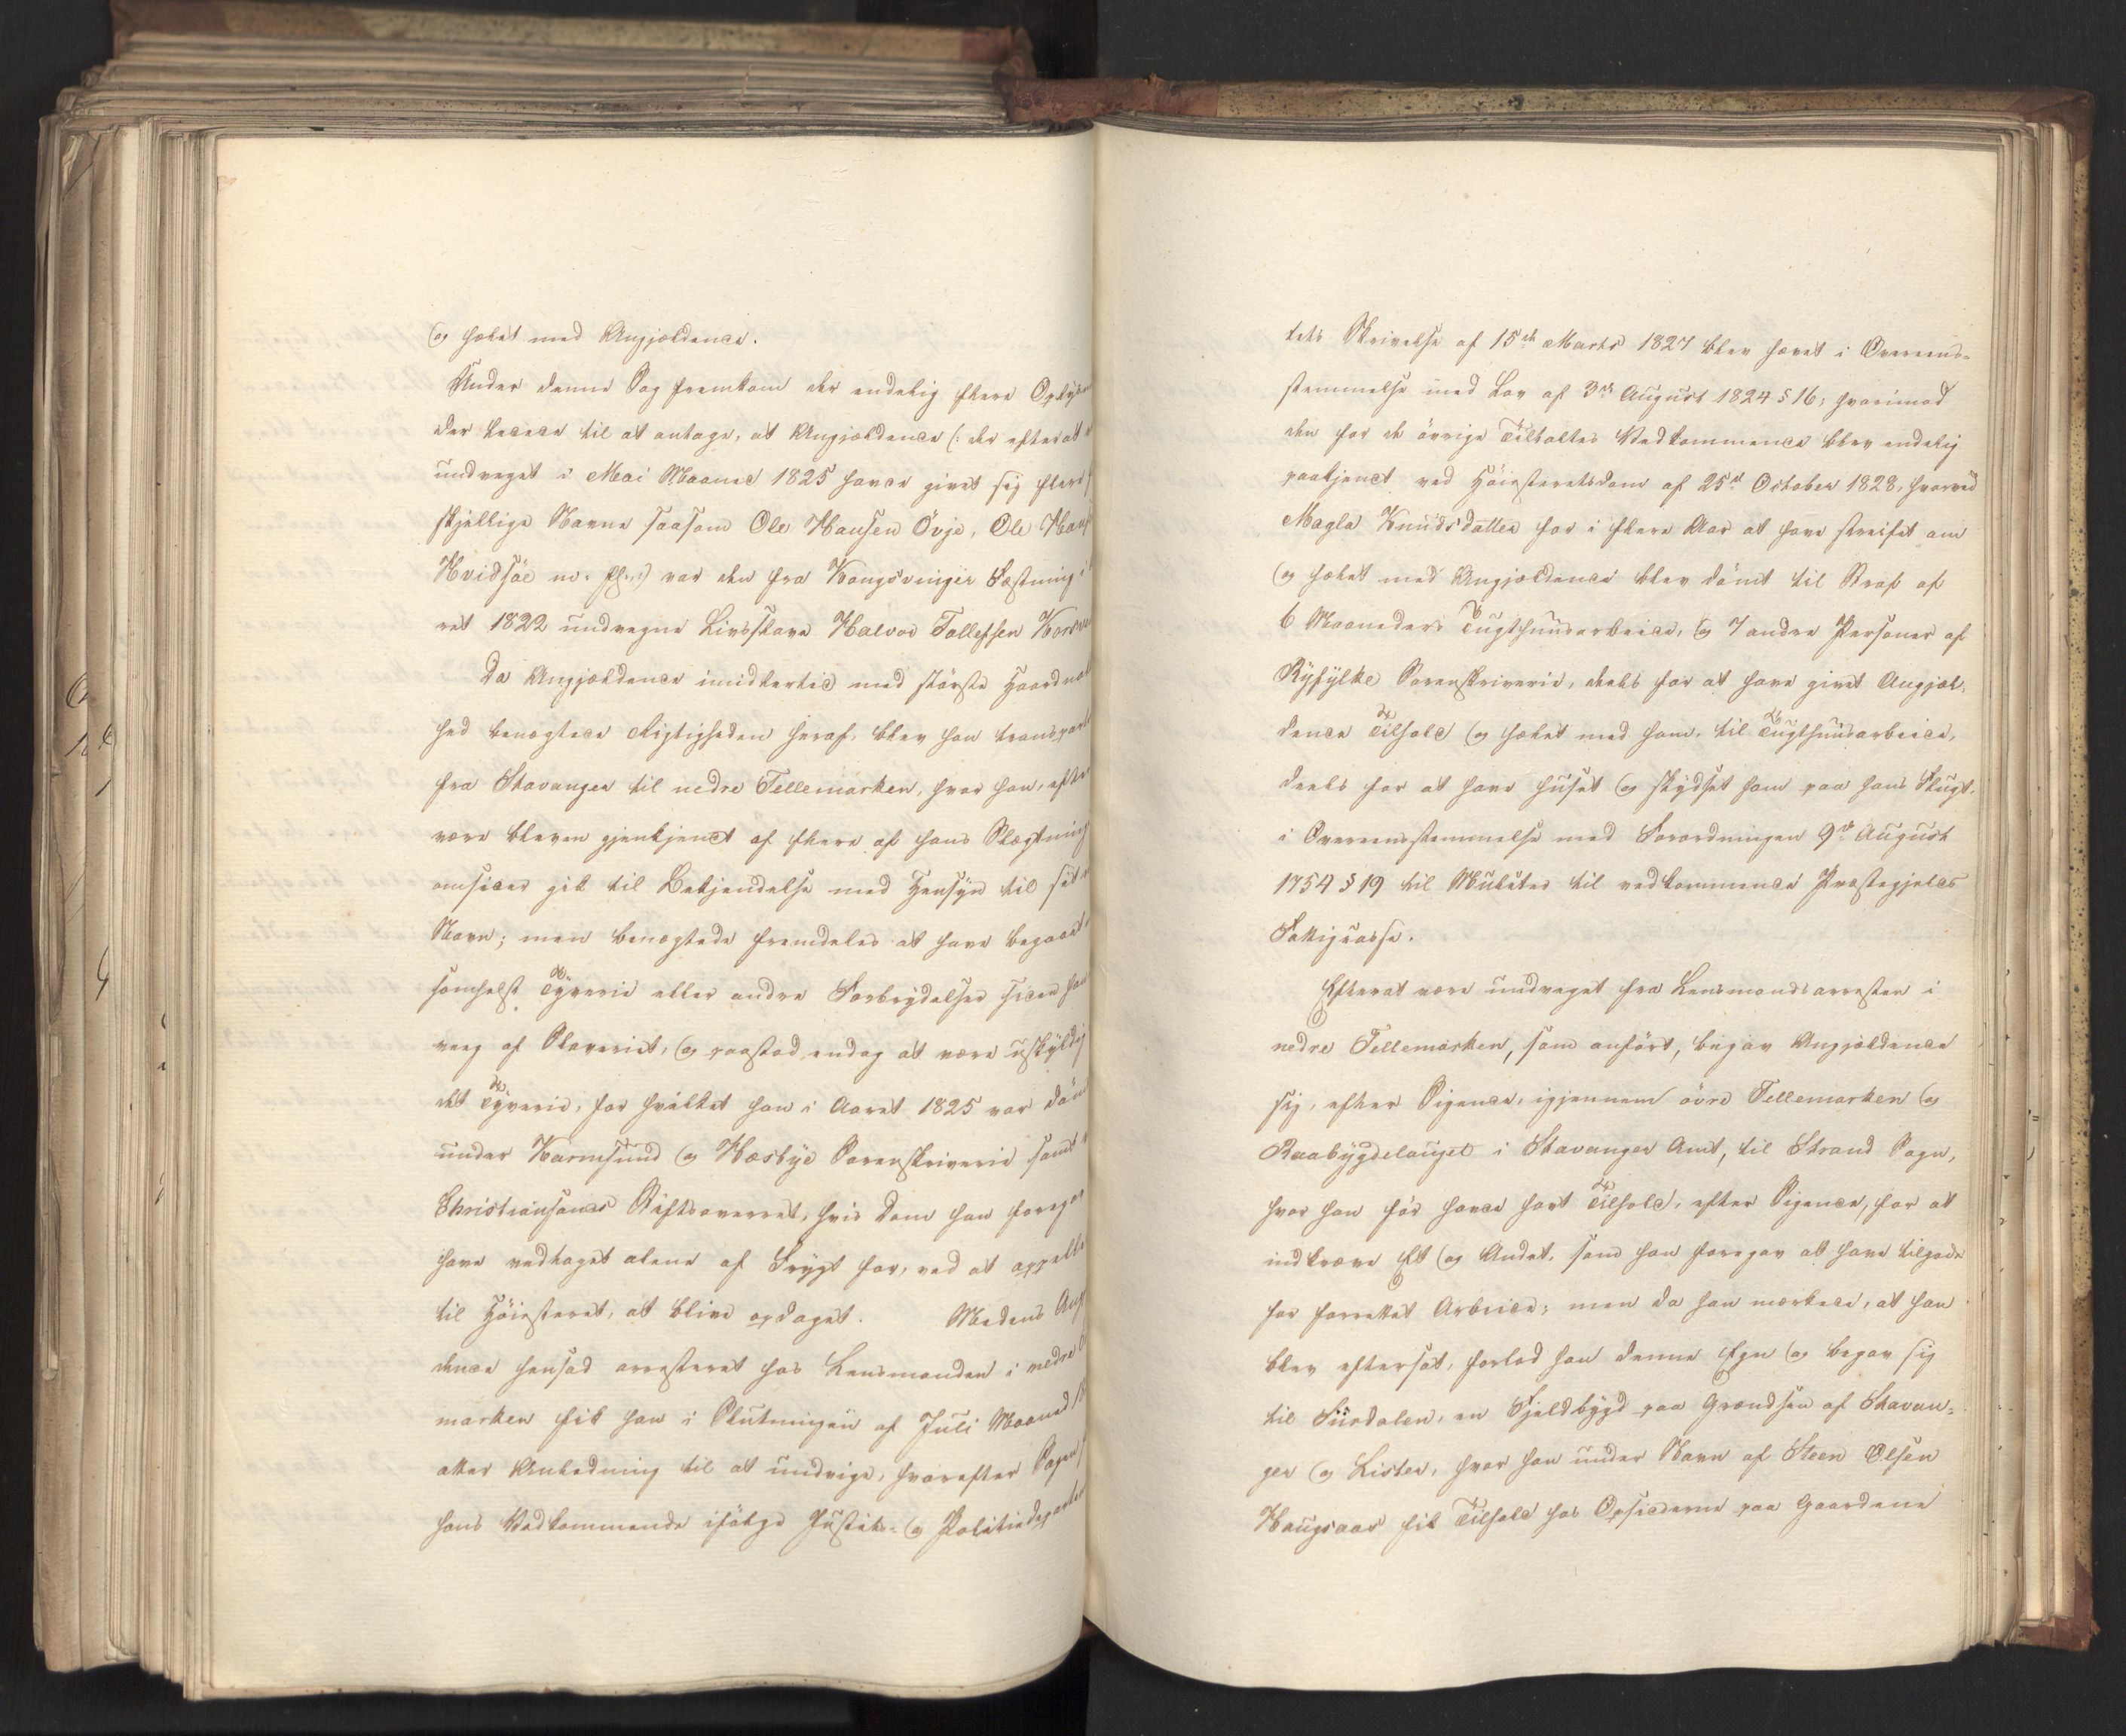 og hælet med Angjeldende.
Under denne Sag fremkom der endelig flere
der ledede til at antage, at Angjeldende (: der efter at
undveget i Mai Maaned 1825 havde givet sig flere
skjellige Navne saasom Ole Hansen Övje, Ole
Hvidsöe m. fl. :) var den fra Kongsvinger Fæstning i
ret 1822 undvegne Livsslave Halvor Tollefsen
Da Angjeldende imidlertid med störste
hed benægtede Rigtigheden heraf, blev han
fra Stavanger til nedre Tellemarken, hvor han, efter
være bleven gjenkjendt af flere af hans
omsider gik til Bekjendelse med Hensyn til sit
Navn; men benægtede fremdeles at have begaaet
somhelst Tyverie eller andre Forbrydelser siden han
veeg af Slaveriet, og paastod endog at være uskyldig
det Tyverie, for hvilket han i Aaret 1825 var
under Karmsund og Hæsbye Sorenskriverie samt
Christiansands Stiftsoverret, hvis Dom han foregav
have vedtaget alene af Frygt for, ved at
til Höiesteret, at blive opdaget. Medens
dende hensad arresteret hos Lensmanden i nedre
marken fik han i Slutningen af Juli Maaned
atter Anledning til at undvige, hvorefter Sagen
hans Vedkommende ifölge Justits- og
tets Skrivelse af 15de Marts 1827 blev hævet i Overeens-
stemmelse med Lov af 3die August 1824 § 16; hvorimod
den for de övrige Tiltaltes Vedkommende blev endelig
paakjendt ved Höiesteretsdom af 25de October 1828, hvorved
Magla Knudsdatter for i flere Aar at have streifet om
og hælet med Angjeldende blev dömt til Straf af
6 Maaneders Tugthuusarbeide, og 7 andre Personer af
Ryfylke Sorenskriverie, deels for at have givet Angjel-
dende Tilhold og hælet med ham, til Tugthuusarbeide,
deels for at have huset og skydset ham paa hans Flugt,
i Overeensstemmelse med Forordningen 9de August
1754 § 19 til Mulkter til vedkommende Præstegjelds
Fattigcasse.
Efterat være undveget fra Lensmandsarresten i
nedre Tellemarken, som anfört, begav Angjeldende
sig, efter Sigende, igjennem övre Tellemarken og
Raabygdelauget i Stavanger Amt, til Strand Sogn,
hvor han för havde havt Tilhold, efter Sigende, for at
indkræve Et og Andet, som han foregav at have tilgode
for forrettet Arbeide; men da han mærkede, at han
blev eftersat, forlod han denne Egn og begav sig
til Siirdalen, en Fjeldbygd paa Grændsen af Stavan-
ger og Lister, hvor han under Navn af Steen Olsen
Haugsaas fik Tilhold hos Opsidderne paa Gaardene